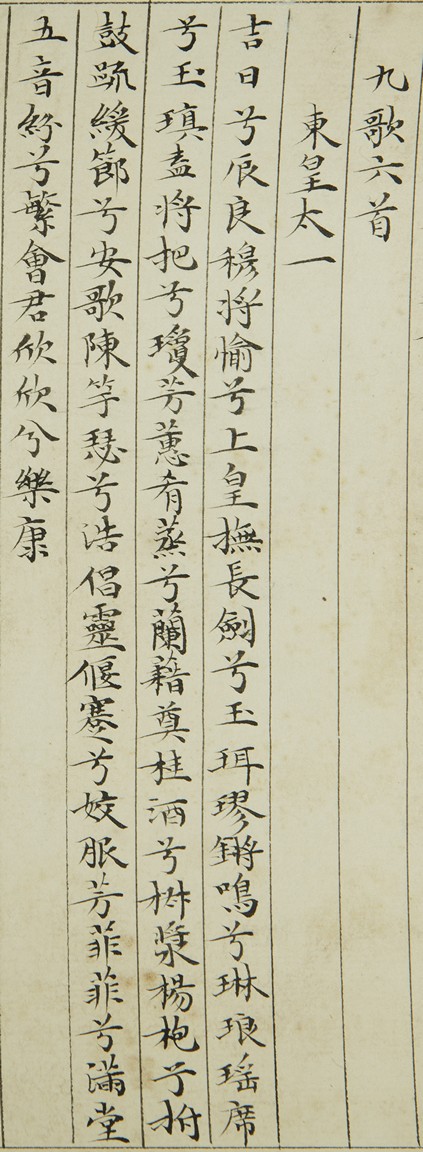 九歌六首
東皇太一
吉日兮辰良穆將愉兮上皇撫長劍兮玉珥璆鏘鳴兮琳琅瑤席
兮玉瑱盍將把兮瓊芳蕙肴蒸兮蘭藉奠桂酒兮椒漿楊枹兮拊
鼓疏緩節兮安歌陳竽瑟兮浩倡靈偃蹇兮姣服芳菲菲兮滿堂
五音紛兮繁會君欣欣兮樂康